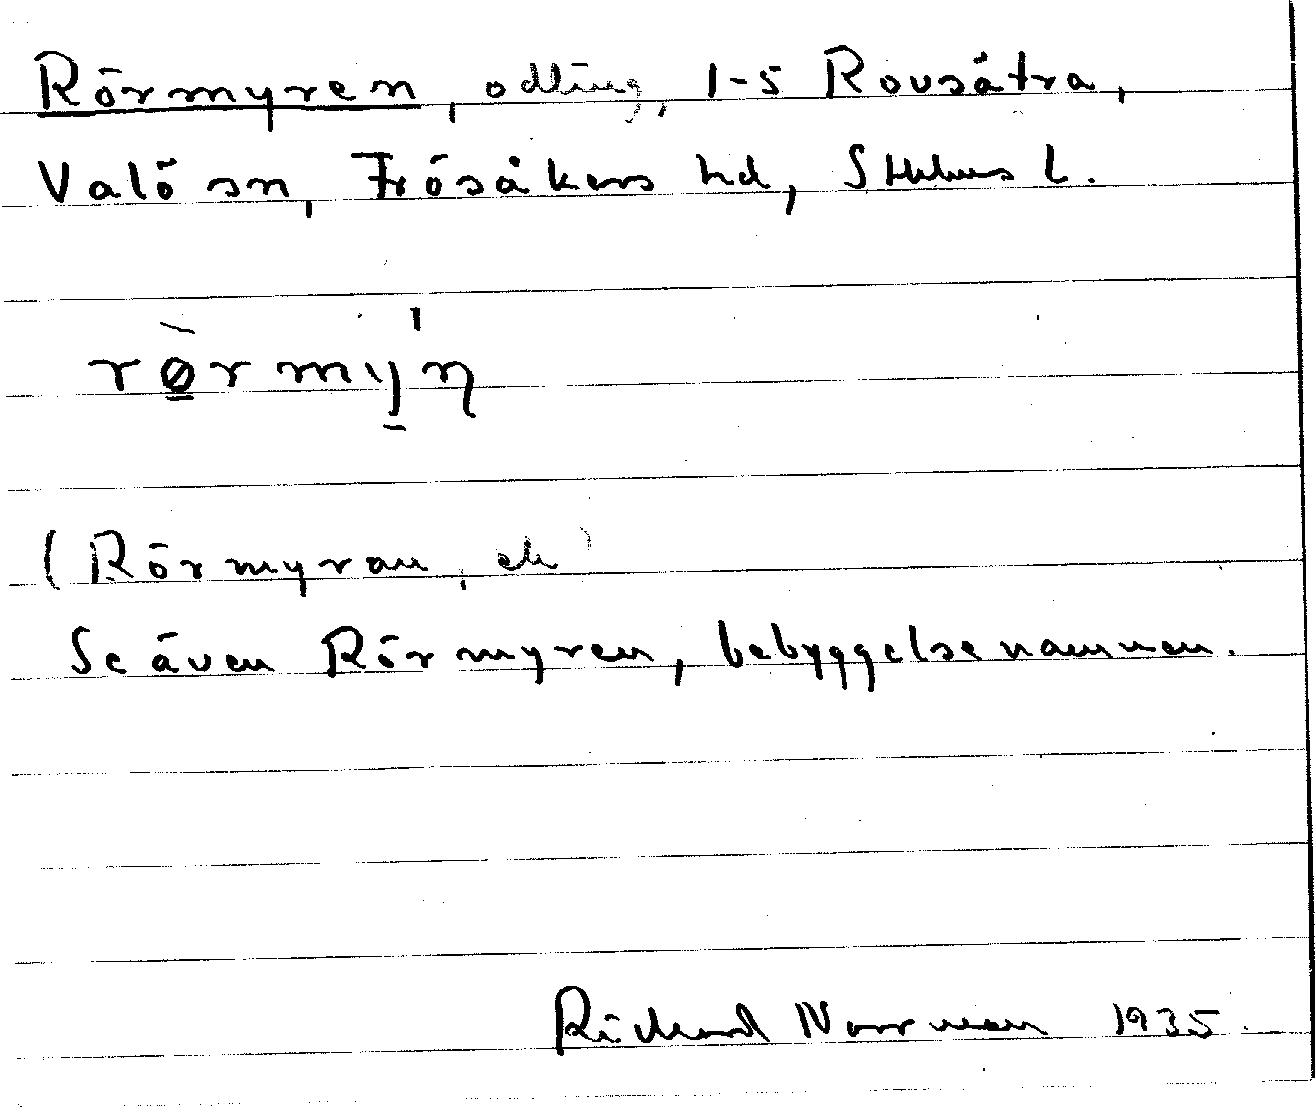 Rörmyren, odling, 1-5 Rovsätra,
Valö sn, Frösåkers hd, Sthlms l.
rørmyṇ
(Rörmyran, ek)
Se även Rörmyren, bebyggelsenamnen.
Richard Norrman 1935